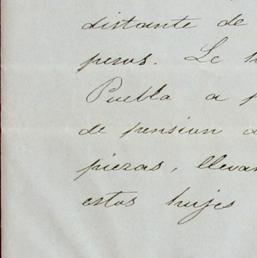 distante de
pesos. Le
Puebla a
de pension
piezas, lleva
estos hujes